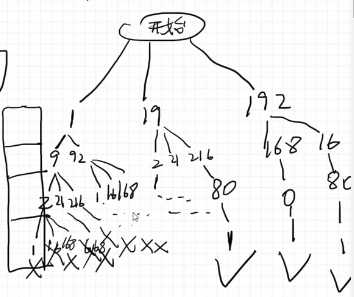 开始
1 19 192
9 92 2 21 216 168 16
2 21 216 1 16 168 1 80 0 80
1 16 168 1